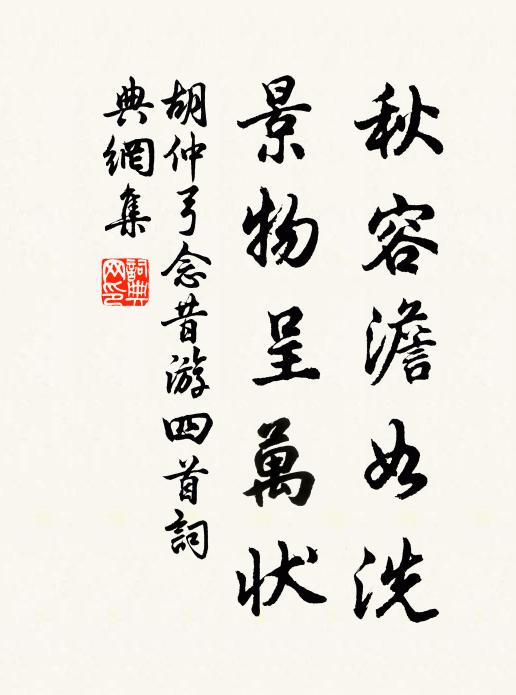 秋容澹如洗
景物呈萬狀
胡仲弓念昔游四首詞
典網集
詞典
网印